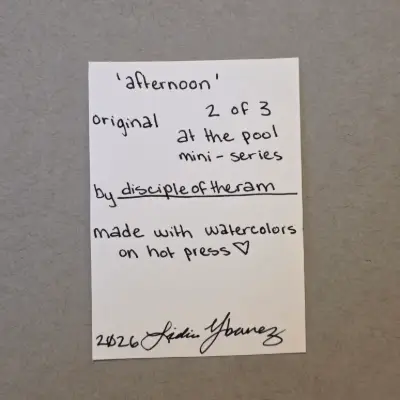 'afternoon'
original 2 of 3
at the pool
mini-series
by discipleoftheram
made with watercolors
on hot press♡
2026 Lidia Ybanez